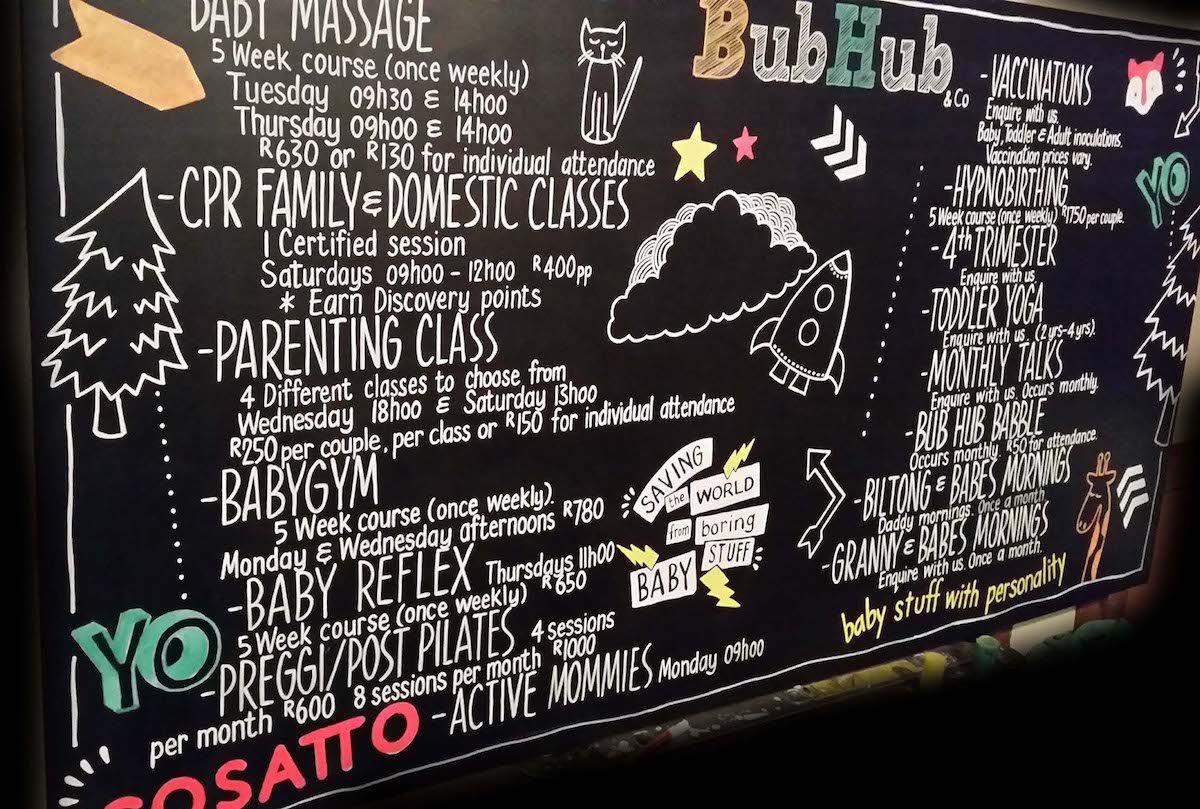 BABY MASSAGE
5 Week course (once weekly)
Tuesday 09h30 & 14h00
Thursday 09h00 & 14h00
R630 or R130 for individual attendance
-CPR FAMILY & DOMESTIC CLASSES
1 Certified session
Saturdays 09h00 - 12h00 R400pp
* Earn Discovery points
-PARENTING CLASS
4 Different classes to choose from
Wednesday 18h00 & Saturday 13h00
R250 per couple, per class or R150 for individual attendance
-BABYGYM
5 Week course (once weekly).
Monday & Wednesday afternoons R780
-BABY REFLEX Thursdays 11h00
5 Week course (once weekly) R650
-PREGGI/POST PILATES 4 sessions
per month R600 8 sessions per month R1000
-ACTIVE MOMMIES Monday 09h00
YO
COSATTO
SAVING
the WORLD
from boring
BABY STUFF
BubHub
& Co
-VACCINATIONS
Enquire with us.
Baby, Toddler & Adult inoculations.
Vaccination prices vary.
-HYPNOBIRTHING
5 Week course (once weekly) R1750 per couple.
-4th TRIMESTER
Enquire with us
-TODDLER YOGA
Enquire with us. (2 yrs-4 yrs).
-MONTHLY TALKS
Enquire with us. Occurs monthly.
-BUB HUB BABBLE
Occurs monthly. R50 for attendance.
-BILTONG & BABES MORNINGS
Daddy mornings. Once a month
-GRANNY & BABES MORNINGS
Enquire with us. Once a month.
baby stuff with personality
YO